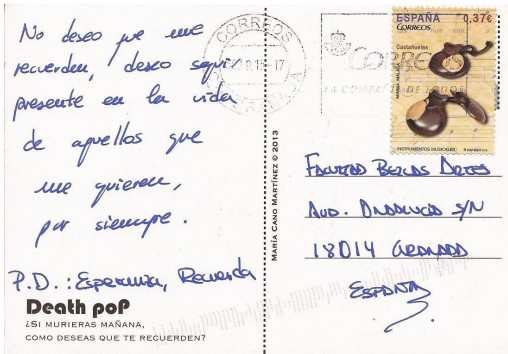 No deseo que me
recuerden, deseo seguir
presente en la vida
de aquellos que
me quieren,
por siempre.
P.D.: Esperanza, Recuerda
Death poP
¿SI MURIERAS MAÑANA,
COMO DESEAS QUE TE RECUERDEN?
MARÍA CANO MARTÍNEZ © 2013
CORREOS
CORREOS
LA COMPAÑÍA DE TODOS
ESPAÑA 0,37€
CORREOS
Castañuelas
INSTRUMENTOS MUSICALES
FACULTAD BELLAS ARTES
AVD. ANDALUCIA S/N
18014 GRANADA
ESPAÑA